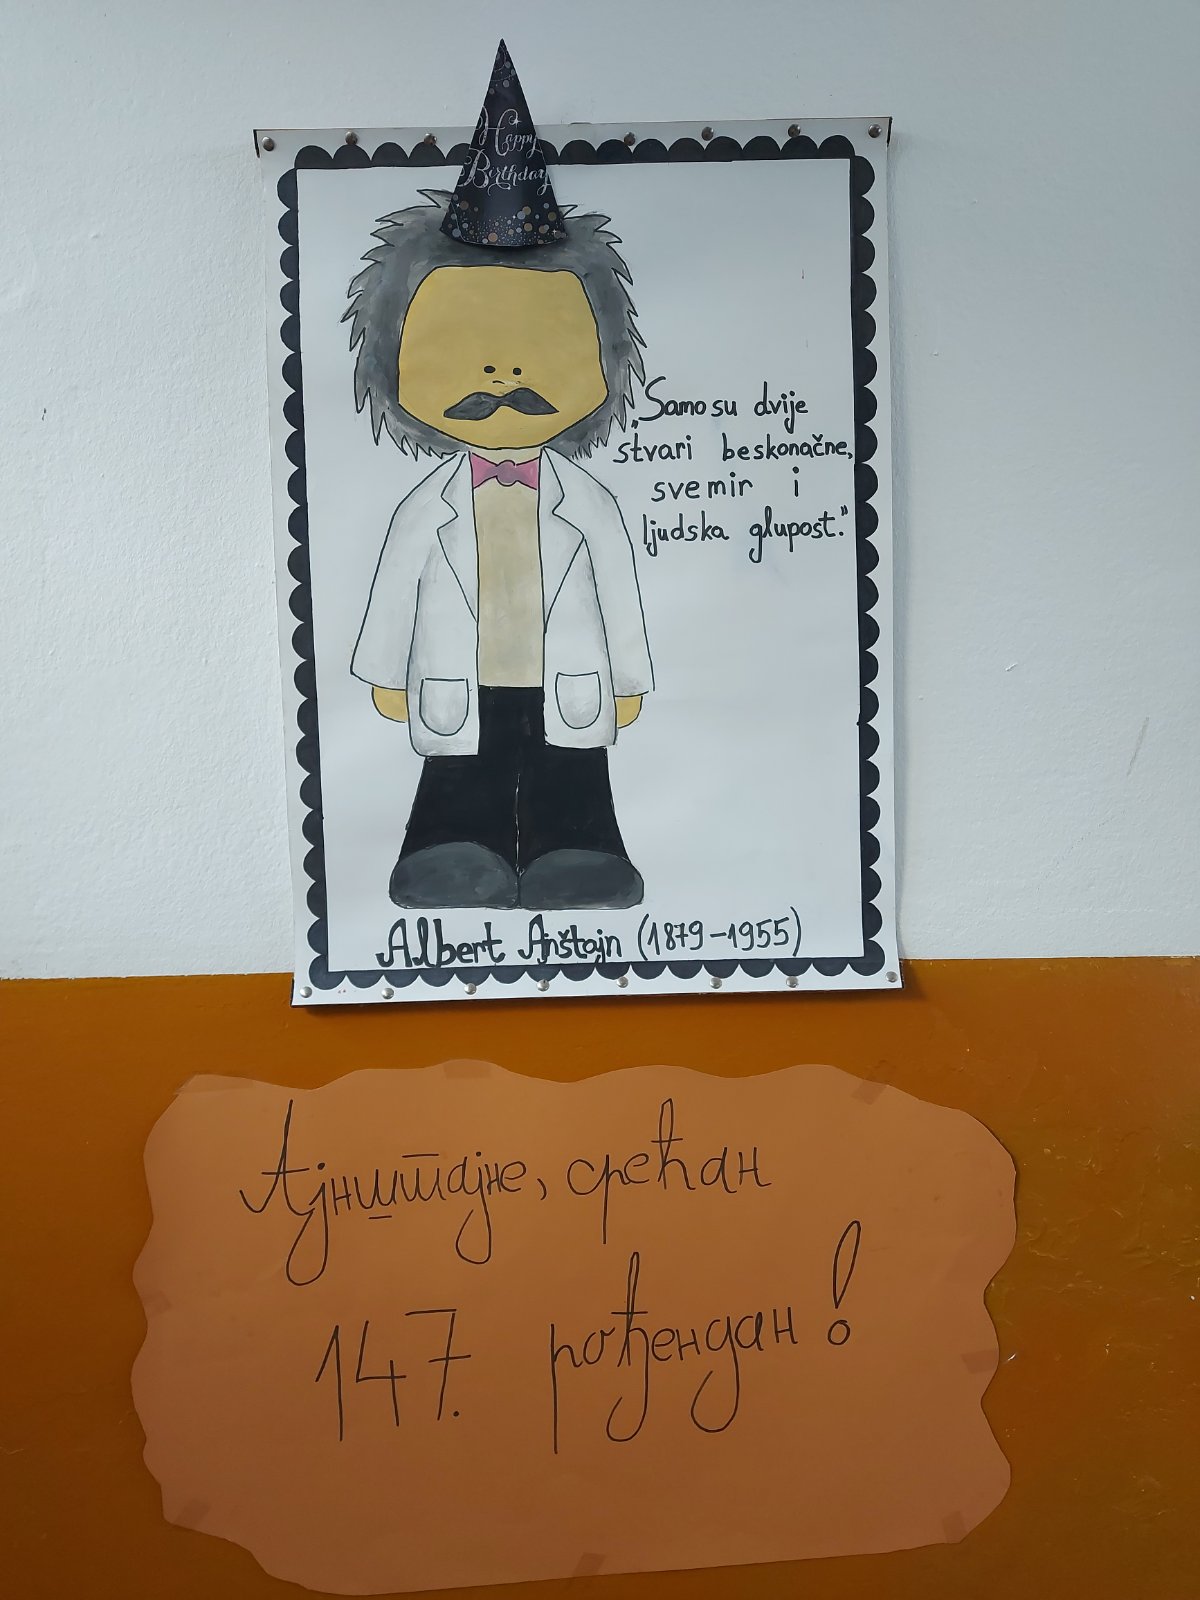 Happy
Birthday
„Samo su dvije
stvari beskonačne,
svemir i
ljudska glupost."
Albert Ajnštajn (1879-1955)
Ајнштајне, срећан
147. рођендан!